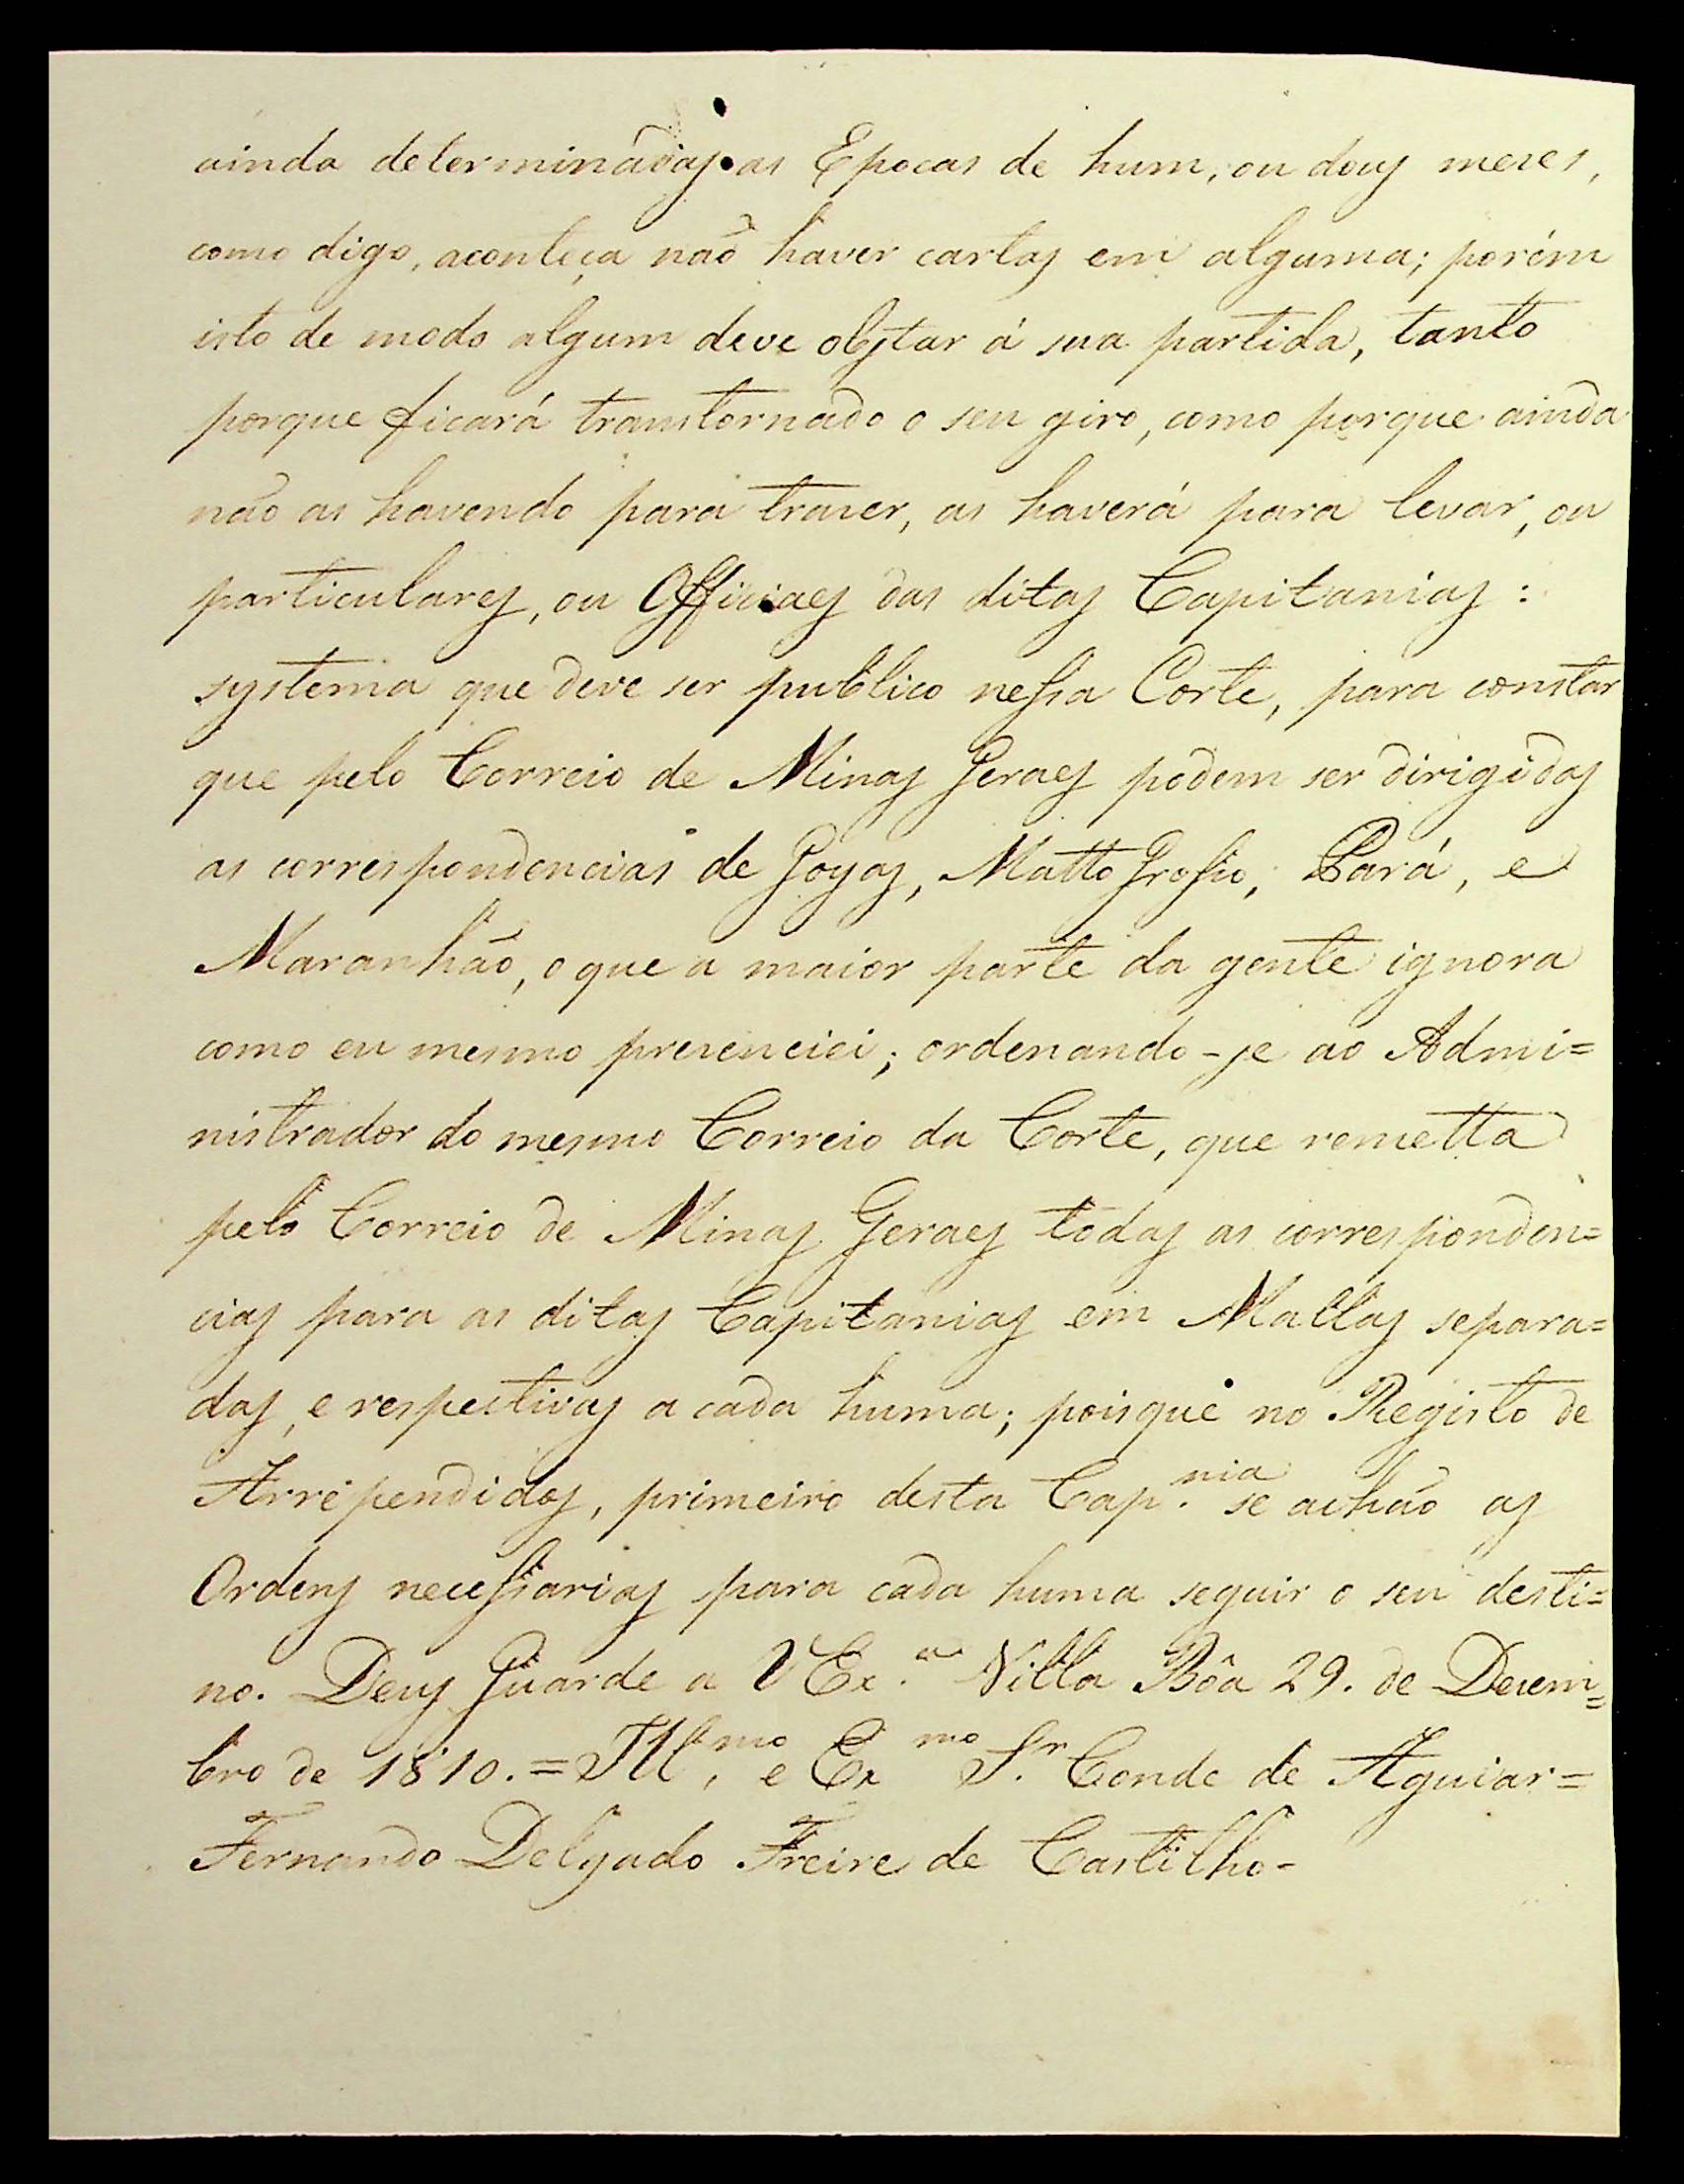 ainda determinadas as Epocas de hum, ou dous mezes,
como digo, aconteça não haver cartas em alguma; porém
isto de modo algum deve obstar á sua partida, tanto
porque ficará transtornado o seu giro, como porque ainda
não as havendo para trazer, as haverá para levar, ou
particulares, ou Officiaes das ditas Capitanias:
systema que deve ser publico nessa Corte, para constar
que pelo Correio de Minas Geraes podem ser dirigidas
as correspondencias de Goyas, Matto Grosso, Pará, e
Maranhão, o que a maior parte da gente ignora
como eu mesmo prezenciei; ordenando-se ao Admi=
nistrador do mesmo Correio da Corte, que remetta
pelo Correio de Minas Geraes todas as corresponden=
cias para as ditas Capitanias em Mallas separa=
das, e respectivas a cada huma; poisque no Registo de
Arrependidos, primeiro desta Cap.nia se achão as
Ordens necessarias para cada huma seguir o seu desti=
no. Deus Guarde a VEx.a Villa Bôa 29. de Dezem=
bro de 1810. = Ill.mo, e Ex.mo S.r Conde de Aguiar =
Fernando Delgado Freire de Castilho -